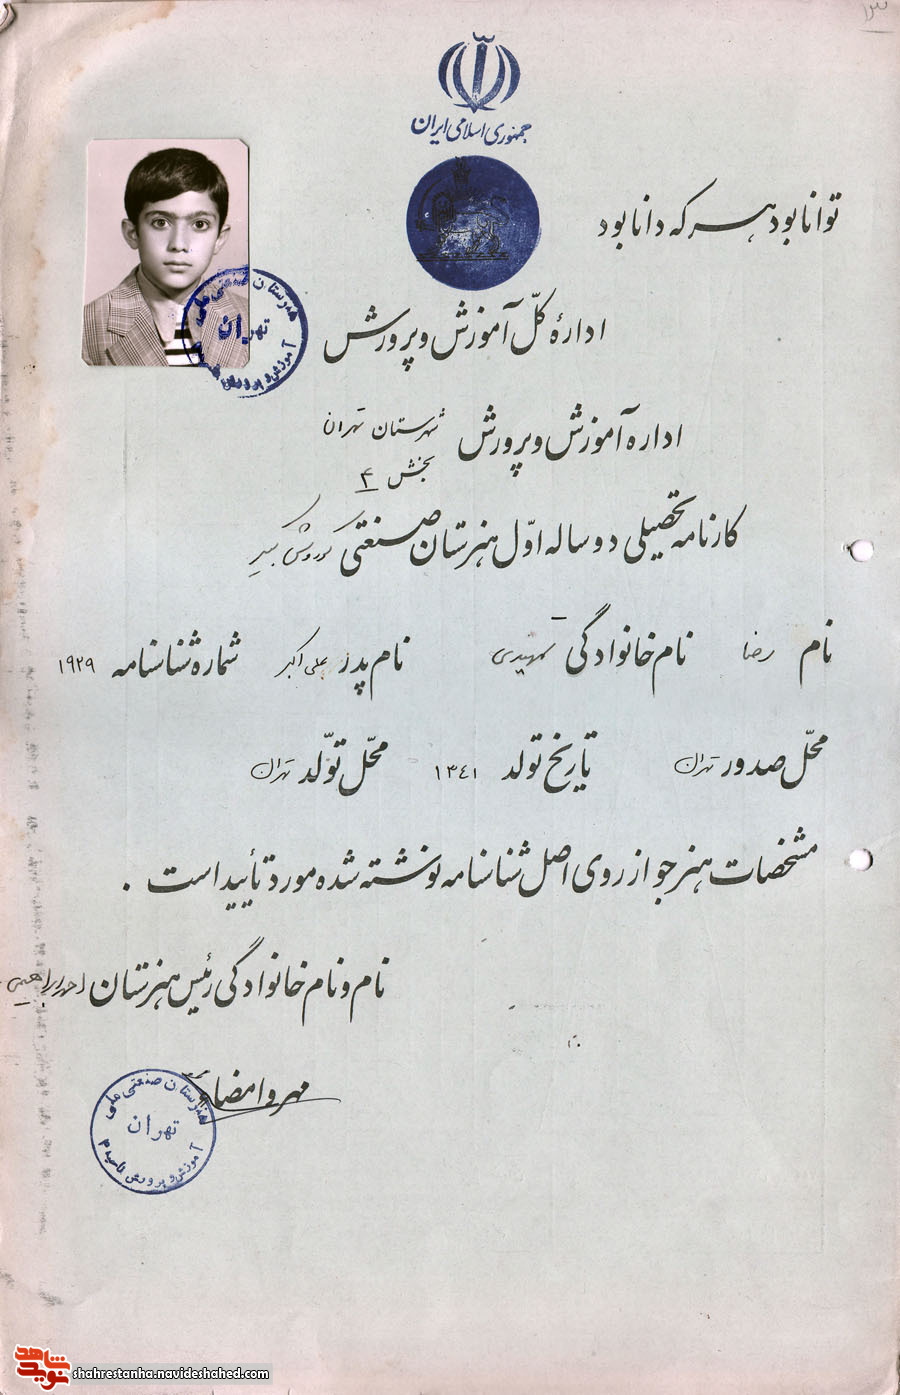 جمهوری اسلامی ایران
توانا بود هر که دانا بود
ادارهٔ کلّ آموزش و پرورش
اداره آموزش و پرورش شهرستان تهران
بخش ۴
کارنامه تحصیلی دو ساله اوّل هنرستان صنعتی کوروش کبیر
نام رضا نام خانوادگی نام پدر علی اکبر شماره شناسنامه ۱۹۲۹
محلّ صدور تهران تاریخ تولد ۱۳٤۱ محلّ تولّد تهران
مشخصات هنرجو از روی اصل شناسنامه نوشته شده مورد تأیید است .
نام و نام خانوادگی رئیس هنرستان احمد ابراهیمی
مهر و امضاء
هنرستان صنعتی ملی
تهران
آموزش و پرورش
هنرستان صنعتی ملی
تهران
آموزش و پرورش ناحیه ۴
نوید شاهد
shahrestanha.navideshahed.com